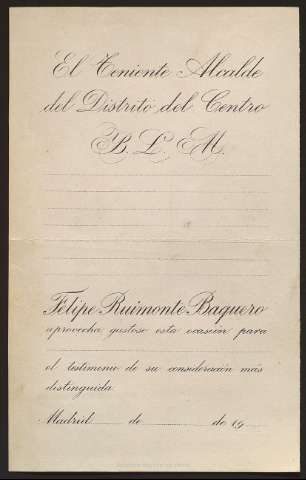 El Teniente Alcalde
del Distrito del Centro
B. L. M.
Felipe Ruimonte Baquero
aprovecha gustoso esta ocasión para
el testimonio de su consideración más
distinguida.
Madrid de de 19